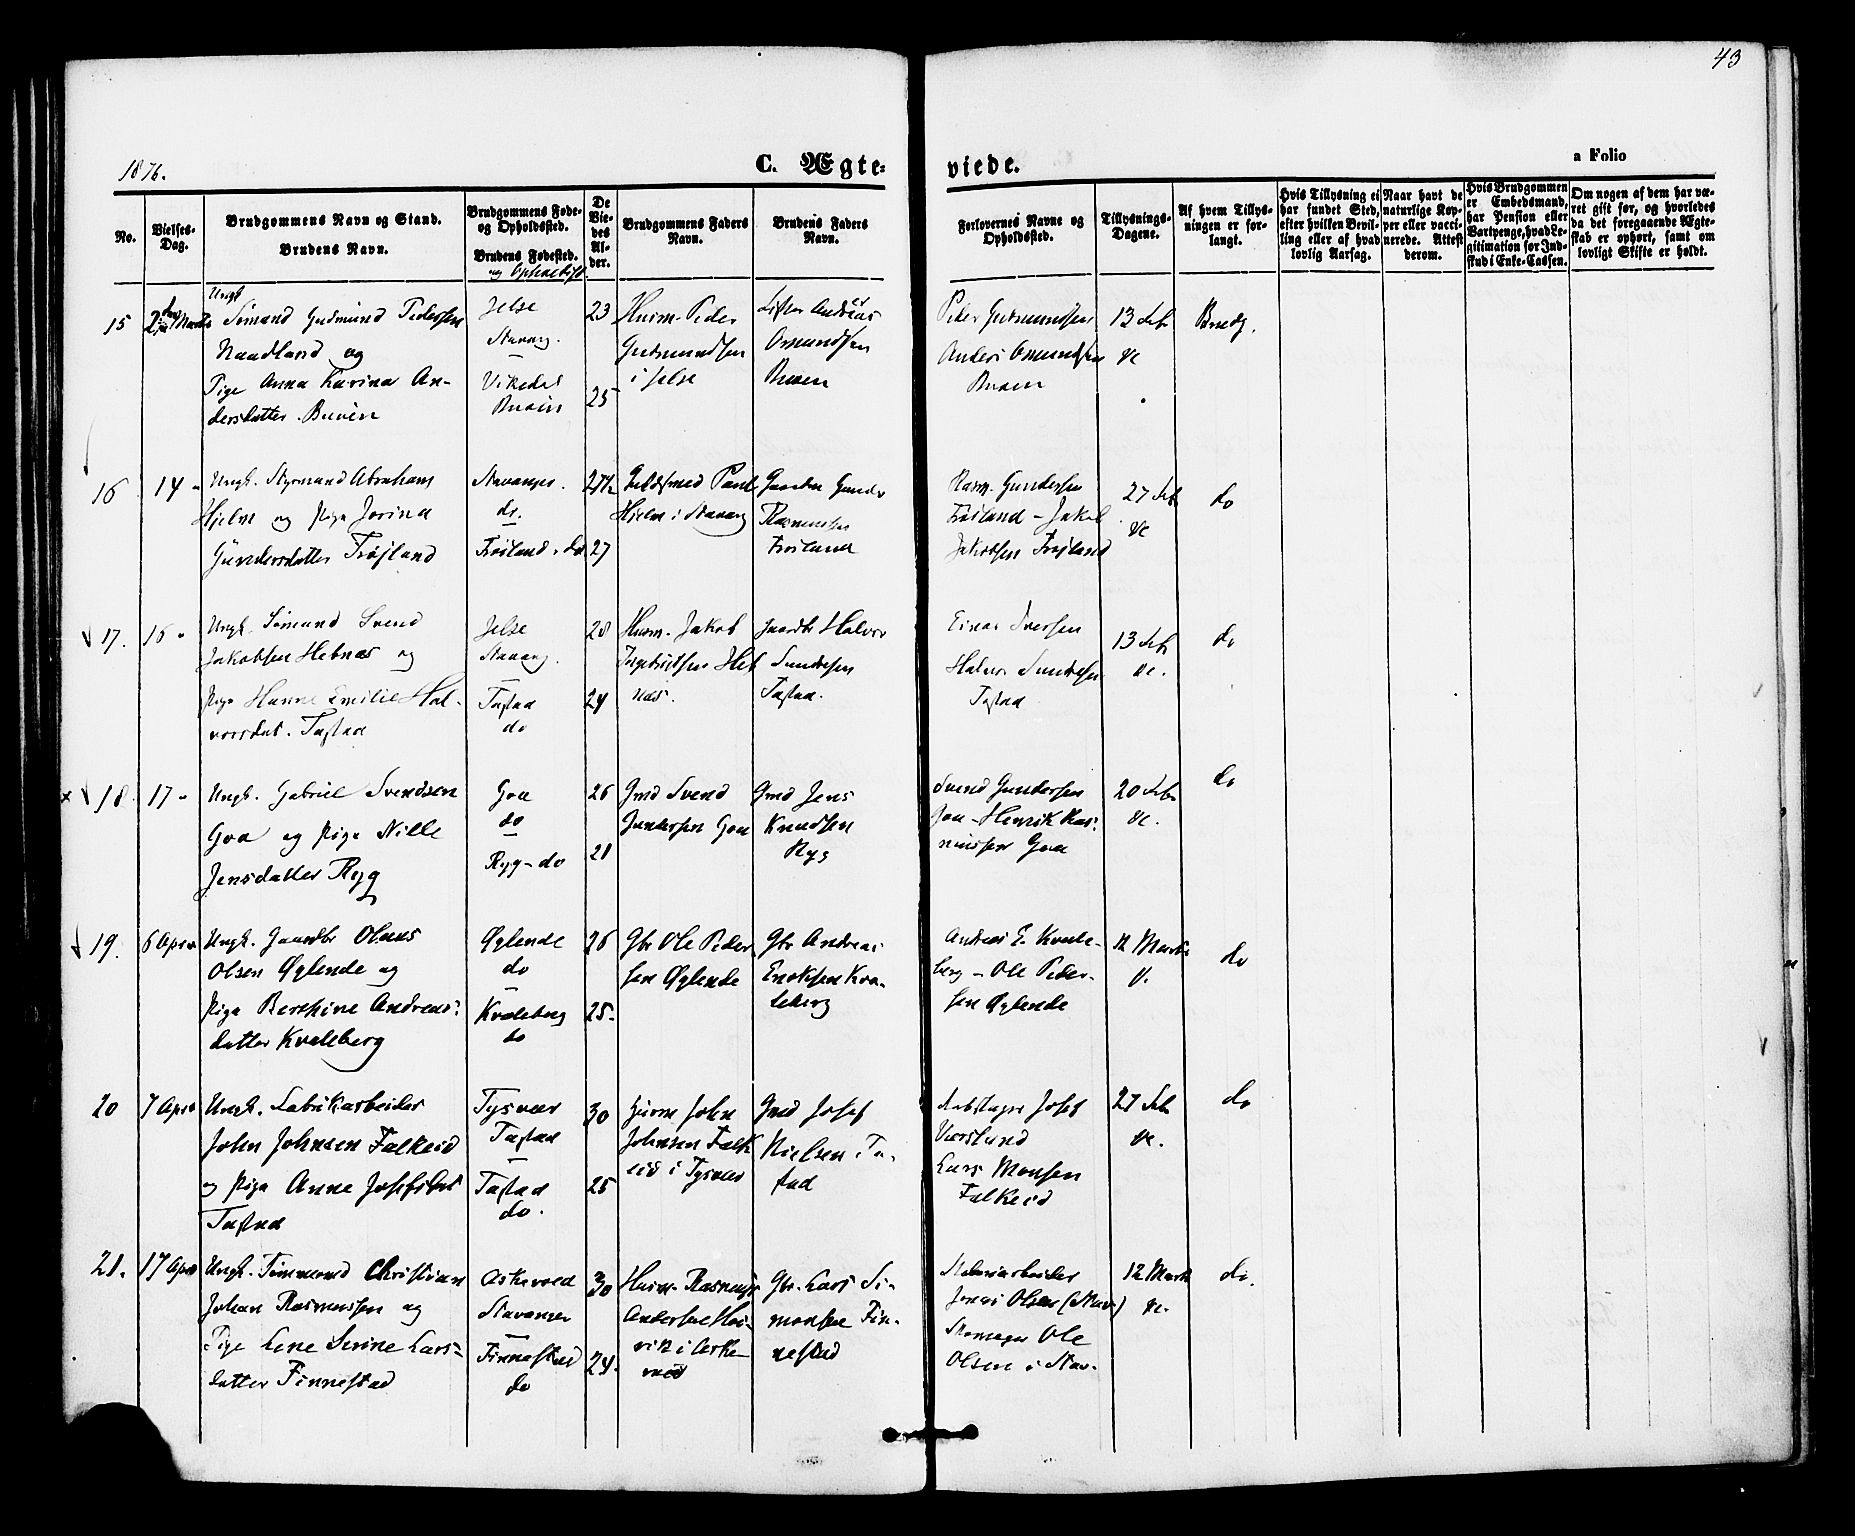 43
1876.
C. Ægte-
viede.
a Folio
No.
Vielses-
Dag.
Brudgommens Navn og Stand.
Brudens Navn.
Brudgommens Føde-
og Opholdssted.
Brudens Fødested.
og Opholdsst
De
Vie-
des
Al-
der.
Brudgommens Faders
Navn.
Brudens Faders
Navn.
Forlovernes Navne og
Opholdssted.
Tillysnings-
Dagene.
Af hvem Tillys-
ningen er for-
langt.
Hvis Tillysning ei
har fundet Sted,
efter hvilken Bevil-
ling eller af hvad
lovlig Aarsag.
Naar havt de
naturlige Kop-
per eller vacci-
nerede. Attest
derom.
Hvis Brudgommen
er Embedsmand,
har Pension eller
Vartpenge, hvad Le-
gitimation for Ind-
skud i Enke-Cassen.
Om nogen af dem har væ-
ret gift før, og hvorledes
da det foregaaende Ægte-
skab er ophørt, samt om
lovligt Skifte er holdt.
15
Ungk
Simand Gudmund Pedersen
Naadland og
Pige Anna Karina An-
dersdatter Buein
Jelse
Stavang.
Vikedal
Buein
23
25
Husm. Peder
Gudmundsen
i Jelse
Andreas
Omundsen
Buein
Peder Gudmundsen
Anders Omundsen
Buein
13 Feb
Brudg.
16
14
Ungk. Abrahams
Hjelm og Pige Jorina
Gundersdatter Trøjland
Stavanger.
do.
Trøiland do
27
Paul
Hjelm i Stavang
Gunder
Rasmussen
Trøiland
Rasm. Gundersen
Trøiland - Jakob
Jakobsen Trøjland
27 Feb
do
17.
16
Ungk. Simund Svend
Jakobsen Hebnæs og
Pige Hanne Emilie Hal-
vorsdat. Tastad
Jelse
Stavang.
Tastad
do
28
24
Husm. Jakob
Ingebrigtsen Heb
næs.
Halvor
Sundresen
Tastad.
Einar Iversen
Halvor Sundresen
Tastad
13 Feb
do
18.
17
Ungk. Gabriel Svendsen
Goa og Pige Nille
Jensdatter Ryg
Goa
do
Ryg - do
26
21
Gmd Svend
Gundersen Goa
Gmd Jens
Knudsen
Ryg
Svend Gundersen
Goa - Henrik Ras-
mussen Goa
20 Feb
do
19.
6 April
Ungk. Gaardbr Olaus
Olsen Øglende og
Pige Berthine Andreas-
datter Kvaleberg
Øglende
do
Kvaleberg
do
26
25.
Gbr Ole Peder
sen Øglende
Gbr Andreas
Enoksen Kva-
leberg
Andreas E. Kvale-
berg - Ole Peder-
sen Øglende
12 Marts
do
20
7 April
Ungk. Fabrikarbeider
John Johnsen Falkeid
og Pige Anne Josefsdat
Tastad
Tysvær
Tastad
Tastad
do.
30
25
Husm John
Johnsen Falk
eid i Tysvær
Gmd Josef
Nielsen Ta-
stad
Josef
Lars Monsen
Falkeid
27 Feb
do
21.
17 April
Ungk. Christian
Johan Rasmussen og
Pige Lene Serine Lars-
datter Finnestad
Askevold
Stavanger
Finnestad
do
30
24.
Husm. Rasmus
Andersen
vik i Aske-
vold
Gbr. Lars Si-
monsen Fin-
nestad
Jonas Olsen (Stav.)
Ole
Olsen i Stav.
12 Marts
do.